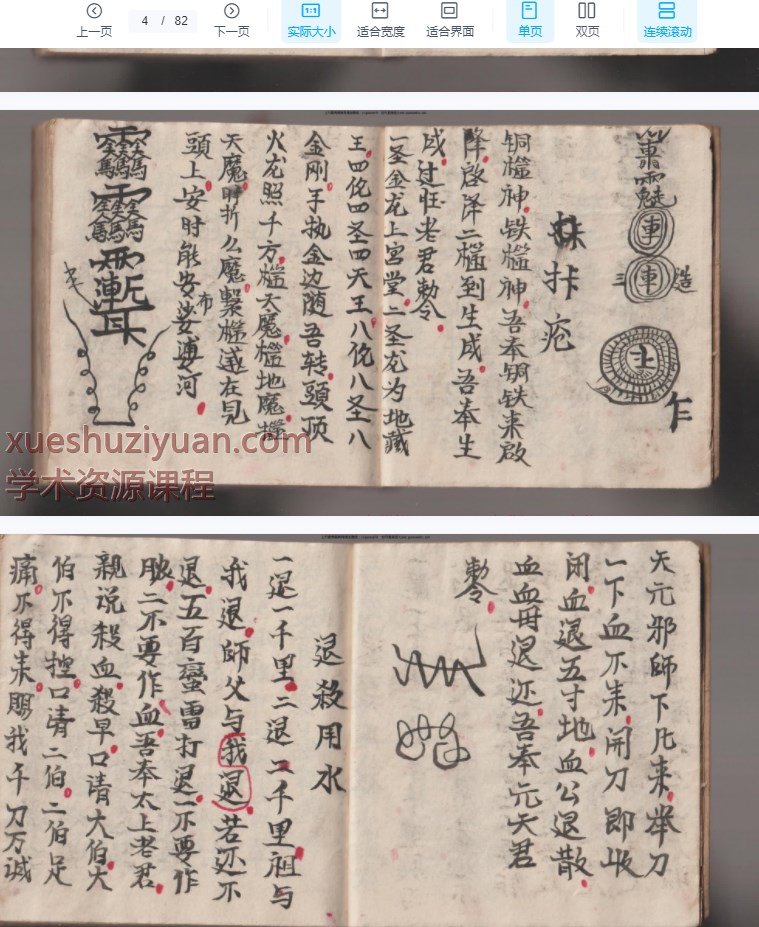 上一页
4 / 82
下一页
实际大小
适合宽度
适合界面
单页
双页
连续滚动
車
三 車 造
土
乍
疟
铜槛神.铁槛神.吾奉铜铁来啟
降.啓降二槛到生成.吾奉生
成过往老君勅令.
一圣金龙上宫堂.二圣龙为地藏
王.四佗四圣四天王.八佗八圣八
金刚.手执金边随吾转.頭顶
火龙照千方.槛天魔.槛地魔.槛
天魔
頭上安时能安娑婆河.
布
xueshuziyuan.com
学术资源课程
天元邪師下凡来.举刀
一下血不来.開刀即收
闭.血退五寸地.血公退散.
血血毋退还.吾奉元天君
勅令.
退殺用水
一退一千里.二退二千里.祖与
我退.師父与我退.若还不
退.五百蛮雷打退.一不要作
脓.二不要作血.吾奉太上老君.
親说殺血.殺早.口请大伯.大
伯不得挳.口请二伯.二伯足
痛.不得来.賜我千刀万诚